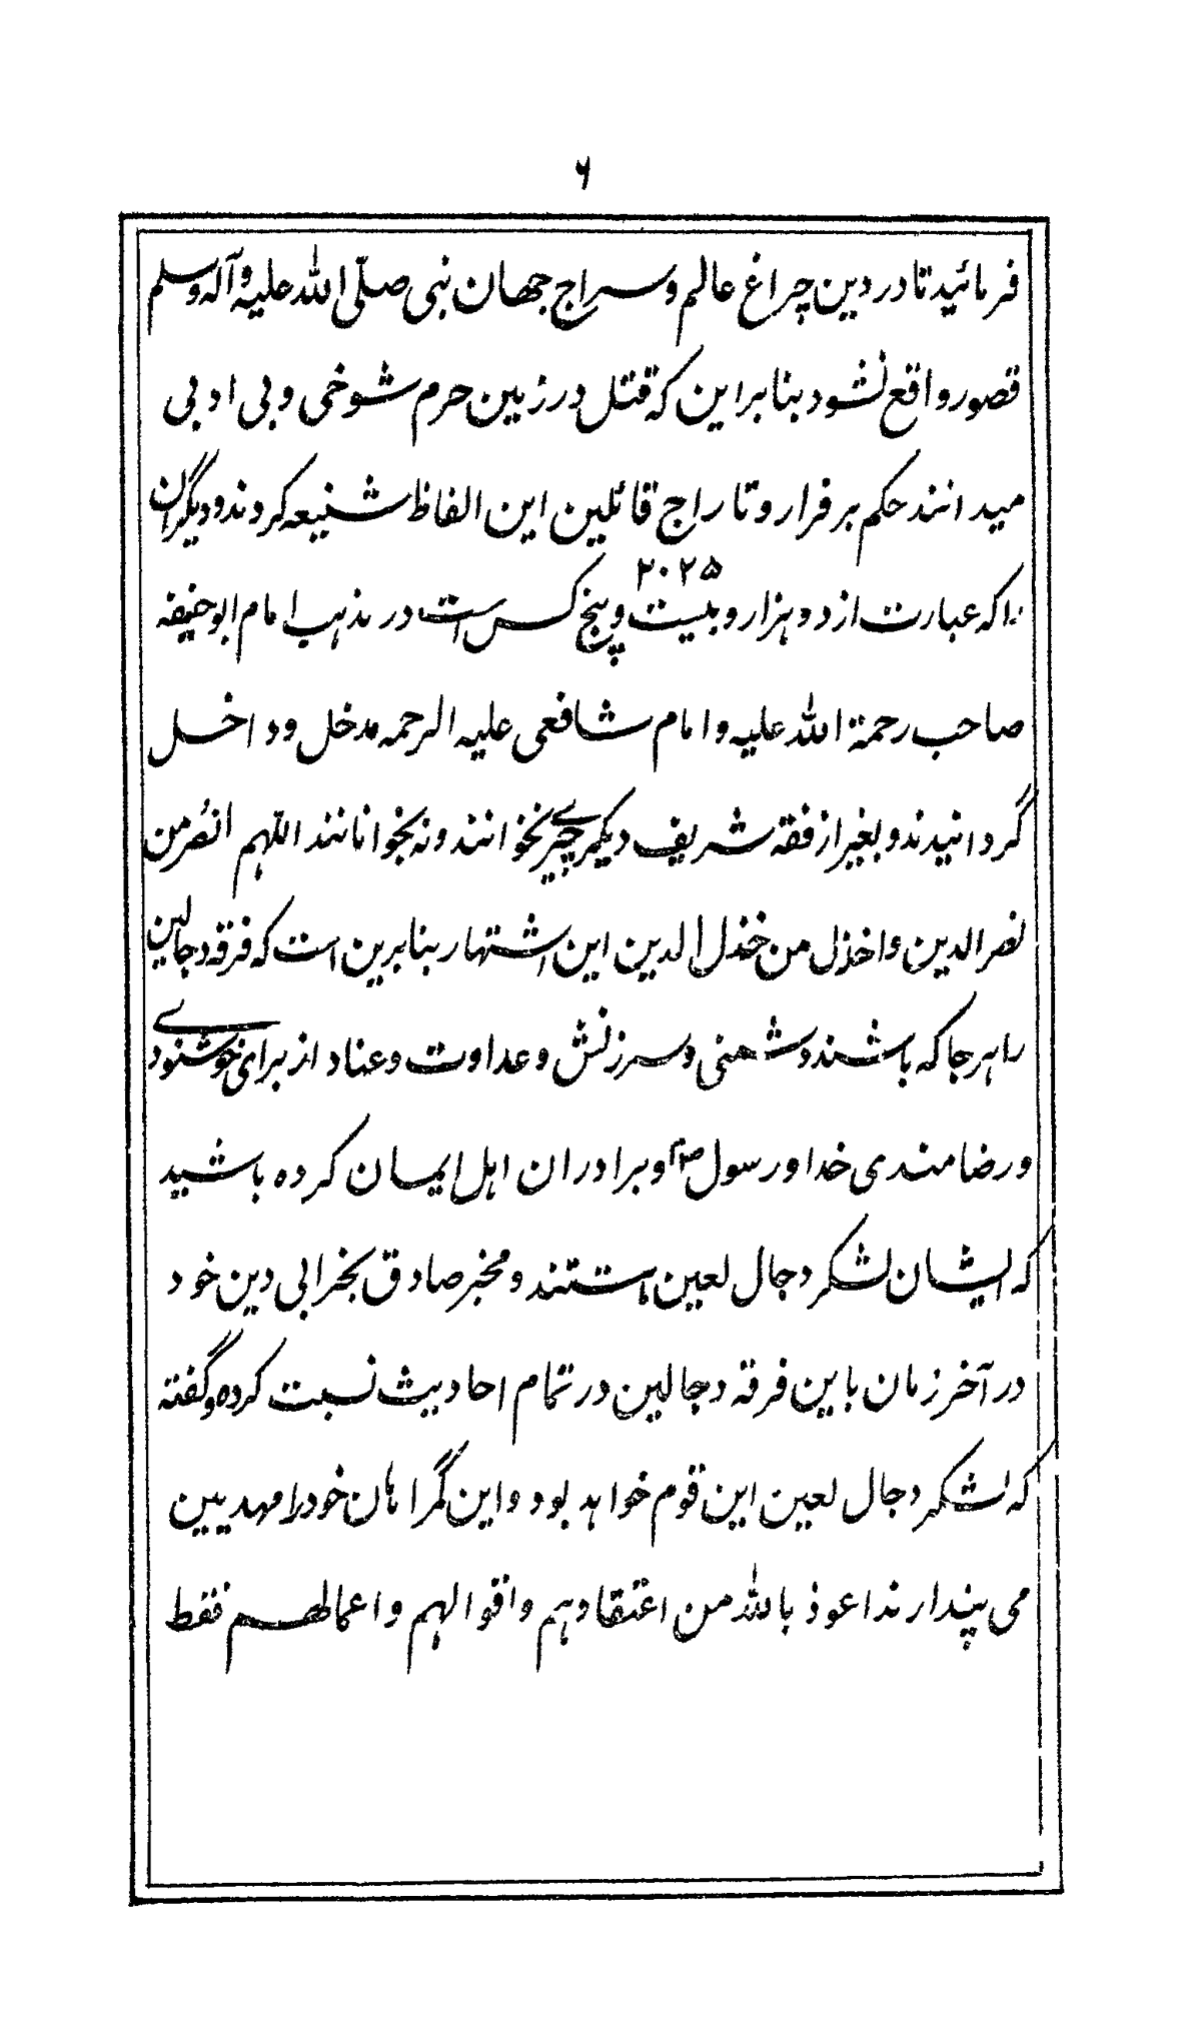 ۶
فرمائید تا در دین چراغ عالم و سراج جهان نبی صلّی الله علیه وآله وسلم
قصور واقع نشود بنا براین که قتل در زمین حرم شوخی و بی ادبی
میدانند حکم بر فرار و تاراج قائلین این الفاظ شنیعه کردند و دیگران
۲۰۲۵
را که عبارت از دو هزار و بیست و پنج کس است در مذهب امام ابوحنیفه
صاحب رحمة الله علیه و امام شافعی علیه الرحمه مدخل و داخل
گردانیدند و بغیر از فقه شریف دیگر چیزے نخوانند و نه بخوانانند اللهم انصُر من
نصر الدین واخذل من خذل الدین این اشتهار بنا برین است که فرقه دجالین
را هر جا که باشند دشمنی و سرزنش و عداوت و عناد از برای خوشنودے
و رضامندی خدا و رسول صلعم و برادران اهل ایمان کرده باشید
که ایشان لشکر دجال لعین هستند و مخبر صادق بخرابی دین خود
در آخر زمان باین فرقه دجالین در تمام احادیث نسبت کرده و گفته
که لشکر دجال لعین این قوم خواهد بود و این گمراهان خود را مهدیین
می پندارند اعوذ بالله من اعتقادهم و اقوالهم و اعمالهم فقط